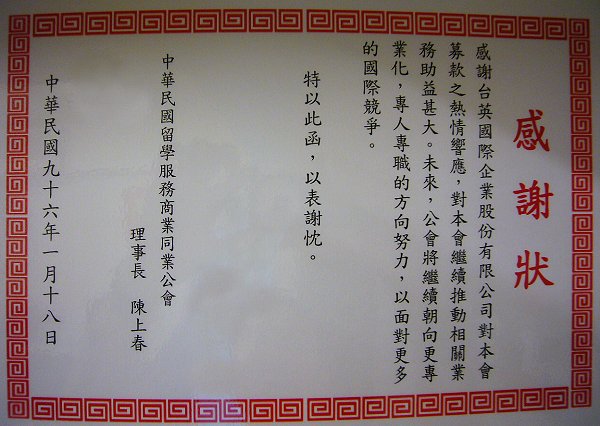 感謝狀
感謝台英國際企業股份有限公司對本會
募款之熱情響應，對本會繼續推動相關業
務助益甚大。未來，公會將繼續朝向更專
業化，專人專職的方向努力，以面對更多
的國際競爭。
特以此函，以表謝忱。
中華民國留學服務商業同業公會
理事長 陳上春
中華民國九十六年一月十八日